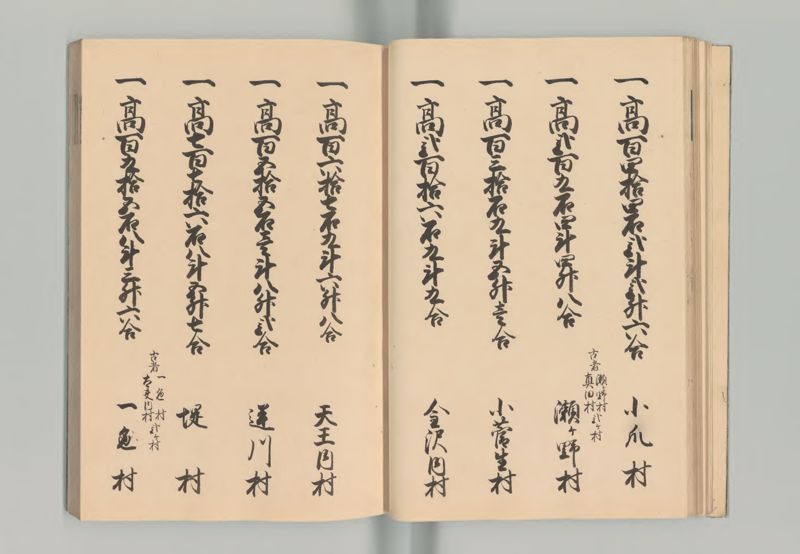 一高百四拾四石弐斗弐升六合 小爪村
一高弐百九石四斗四升八合 瀬ヶ野村
古者瀬野村 真田村 弐ヶ村
一高百三拾石九斗五升壱合 小菅生村
一高弐百拾六石九斗九合 金沢内村
一高百六拾七石九斗六升八合 天王内村
一高百五拾五石壱斗八升弐合 蓮川村
一高七百七拾六石八斗五升七合 堤村
一高百九拾五石八斗三升六合 一色村
古者一色村 内村 弐ヶ村